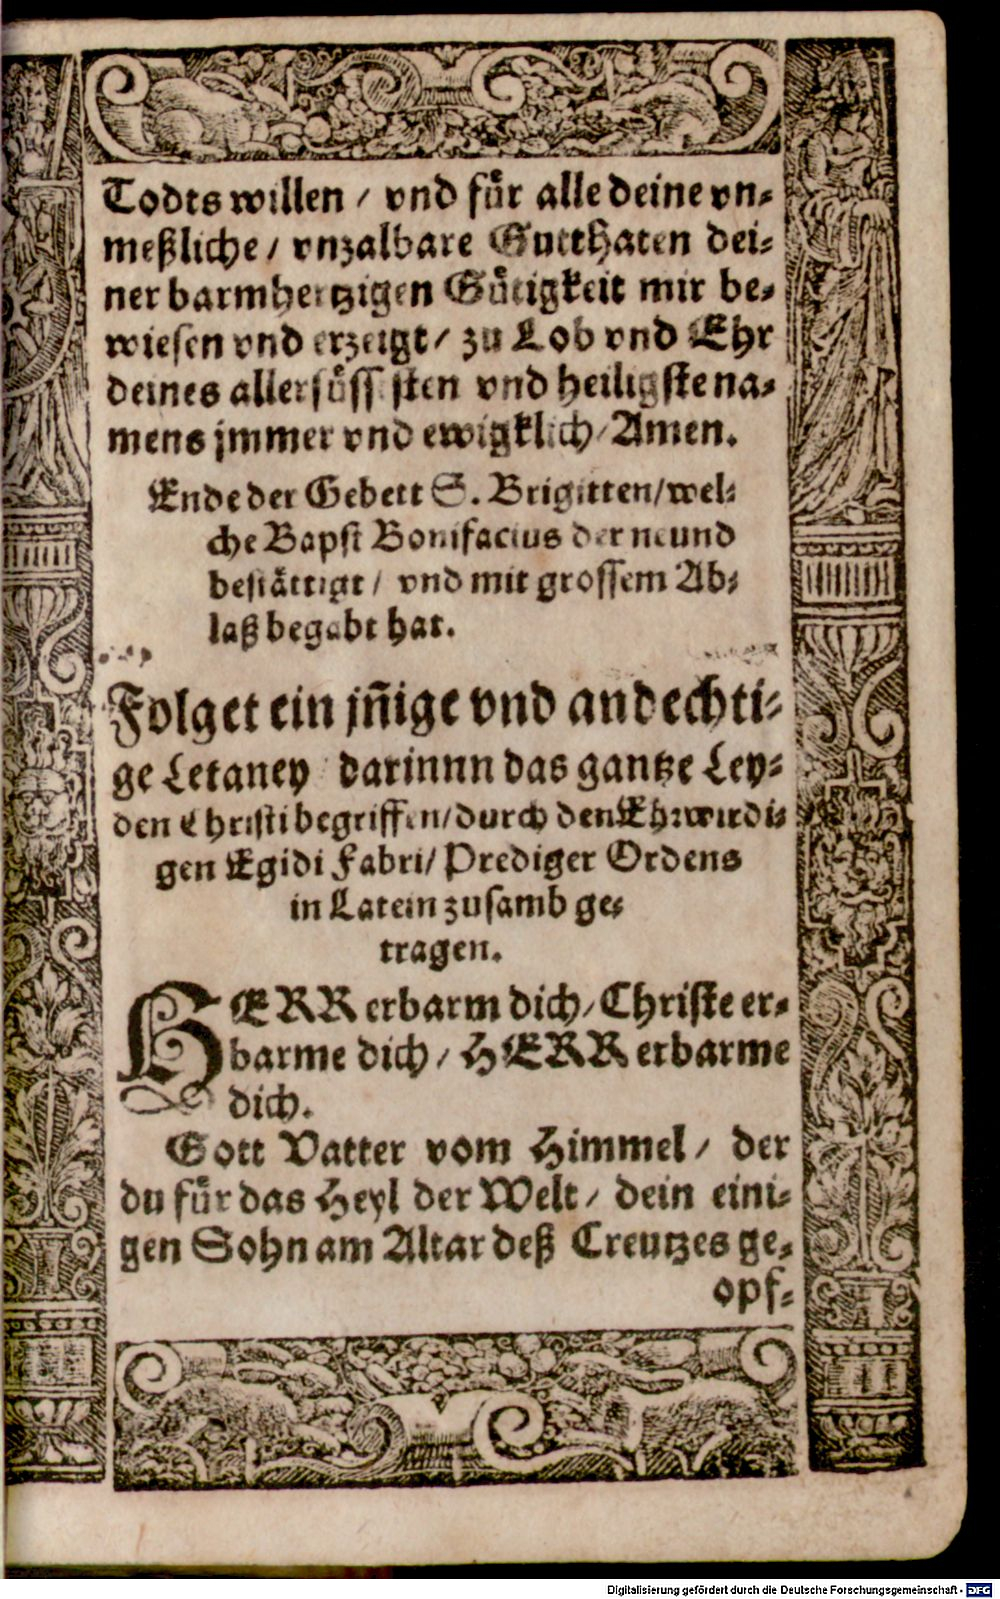 Todts willen / vnd fuͤr alle deine vn⸗
meßliche / vnzalbare Gutthaten dei⸗
ner barmhertzigen Guͤtigkeit mir be⸗
wiesen vnd erzeigt / zu Lob vnd Ehr
deines allersuͤssisten vnd heiligste na⸗
mens jmmer vnd ewigklich / Amen.
Ende der Gebett S. Brigitten / wel⸗
che Bapst Bonifacius der neund
bestaͤttigt / vnd mit grossem Ab⸗
laß begabt hat.
Folget ein jñige vnd andechti⸗
ge Letaney darinnn das gantze Ley⸗
den Christi begriffen / durch den Ehrwirdi⸗
gen Egidi Fabri / Prediger Ordens
in Latein zusamb ge⸗
tragen.
HERR erbarm dich / Christe er⸗
barme dich / HERR erbarme
dich.
Gott Vatter vom Himmel / der
du fuͤr das Heyl der Welt / dein eini⸗
gen Sohn am Altar deß Creutzes ge⸗
opf⸗
Digitalisierung gefördert durch die Deutsche Forschungsgemeinschaft - DFG